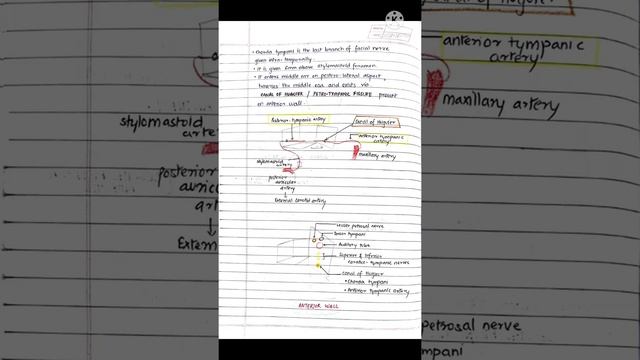 • Chorda tympani is the last branch of facial nerve
given intra temporally
• It is given 6mm above stylomastoid foramen.
• It enters middle ear on postero-lateral aspect,
traverses the middle ear and exits via
CANAL OF HUGUIER / PETRO-TYMPANIC FISSURE present
on anterior wall
Submax-tympanic artery
Canal of Huguier
anterior tympanic
artery
maxillary artery
stylomastoid
artery
posterior
auricular
artery
External carotid artery
lesser petrosal nerve
Tensor tympani
Auditory tube
Superior & inferior
carotico-tympanic nerves
canal of Huguier
• Chorda tympani
• Anterior tympanic artery
ANTERIOR WALL
anterior tympanic
artery
maxillary artery
stylomastoid
posterior
Extern
petrosal nerve